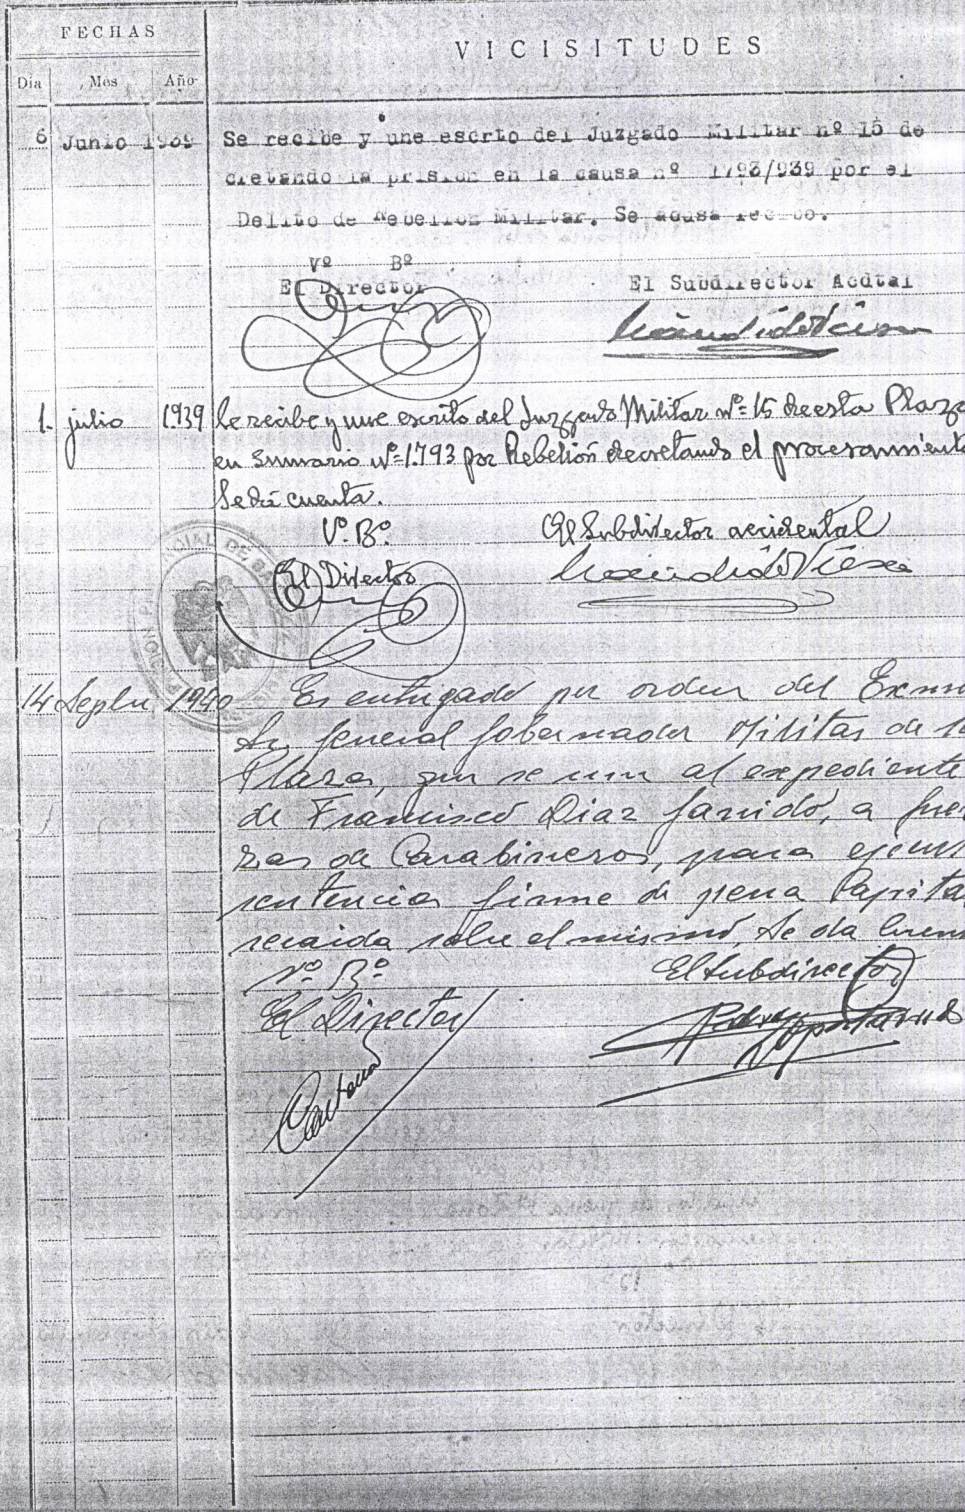 FECHAS
VICISITUDES
Día Mes Año
6 Junio 1939 Se recibe y une escrto del Juzgado Militar nº 15 de
cretando la prisión en la causa nº 1793/939 por el
Delito de Rebelion Militar. Se acusa recibo.
Vº Bº
El Director El Subdirector Acdtal
1. julio 1939 Se recibe y une escrito del Juzgado Militar nº=15 de esta Plaza
en Sumario nº=1.793 por Rebelión decretando el procesamiento
Se da cuenta.
Vº. Bº. El Subdirector accidental
El Director
14 Sepbre 1940 Es entregado por orden del Exmo
Sr. General Gobernador Militar de la
Plaza, que se une al expediente
de Francisco Diaz Garrido, a fuer
zas de Carabineros, para ejecutar
sentencia firme de pena Capital
recaida sobre el mismo, Se da cuenta
Vº Bº El Subdirector
El Director